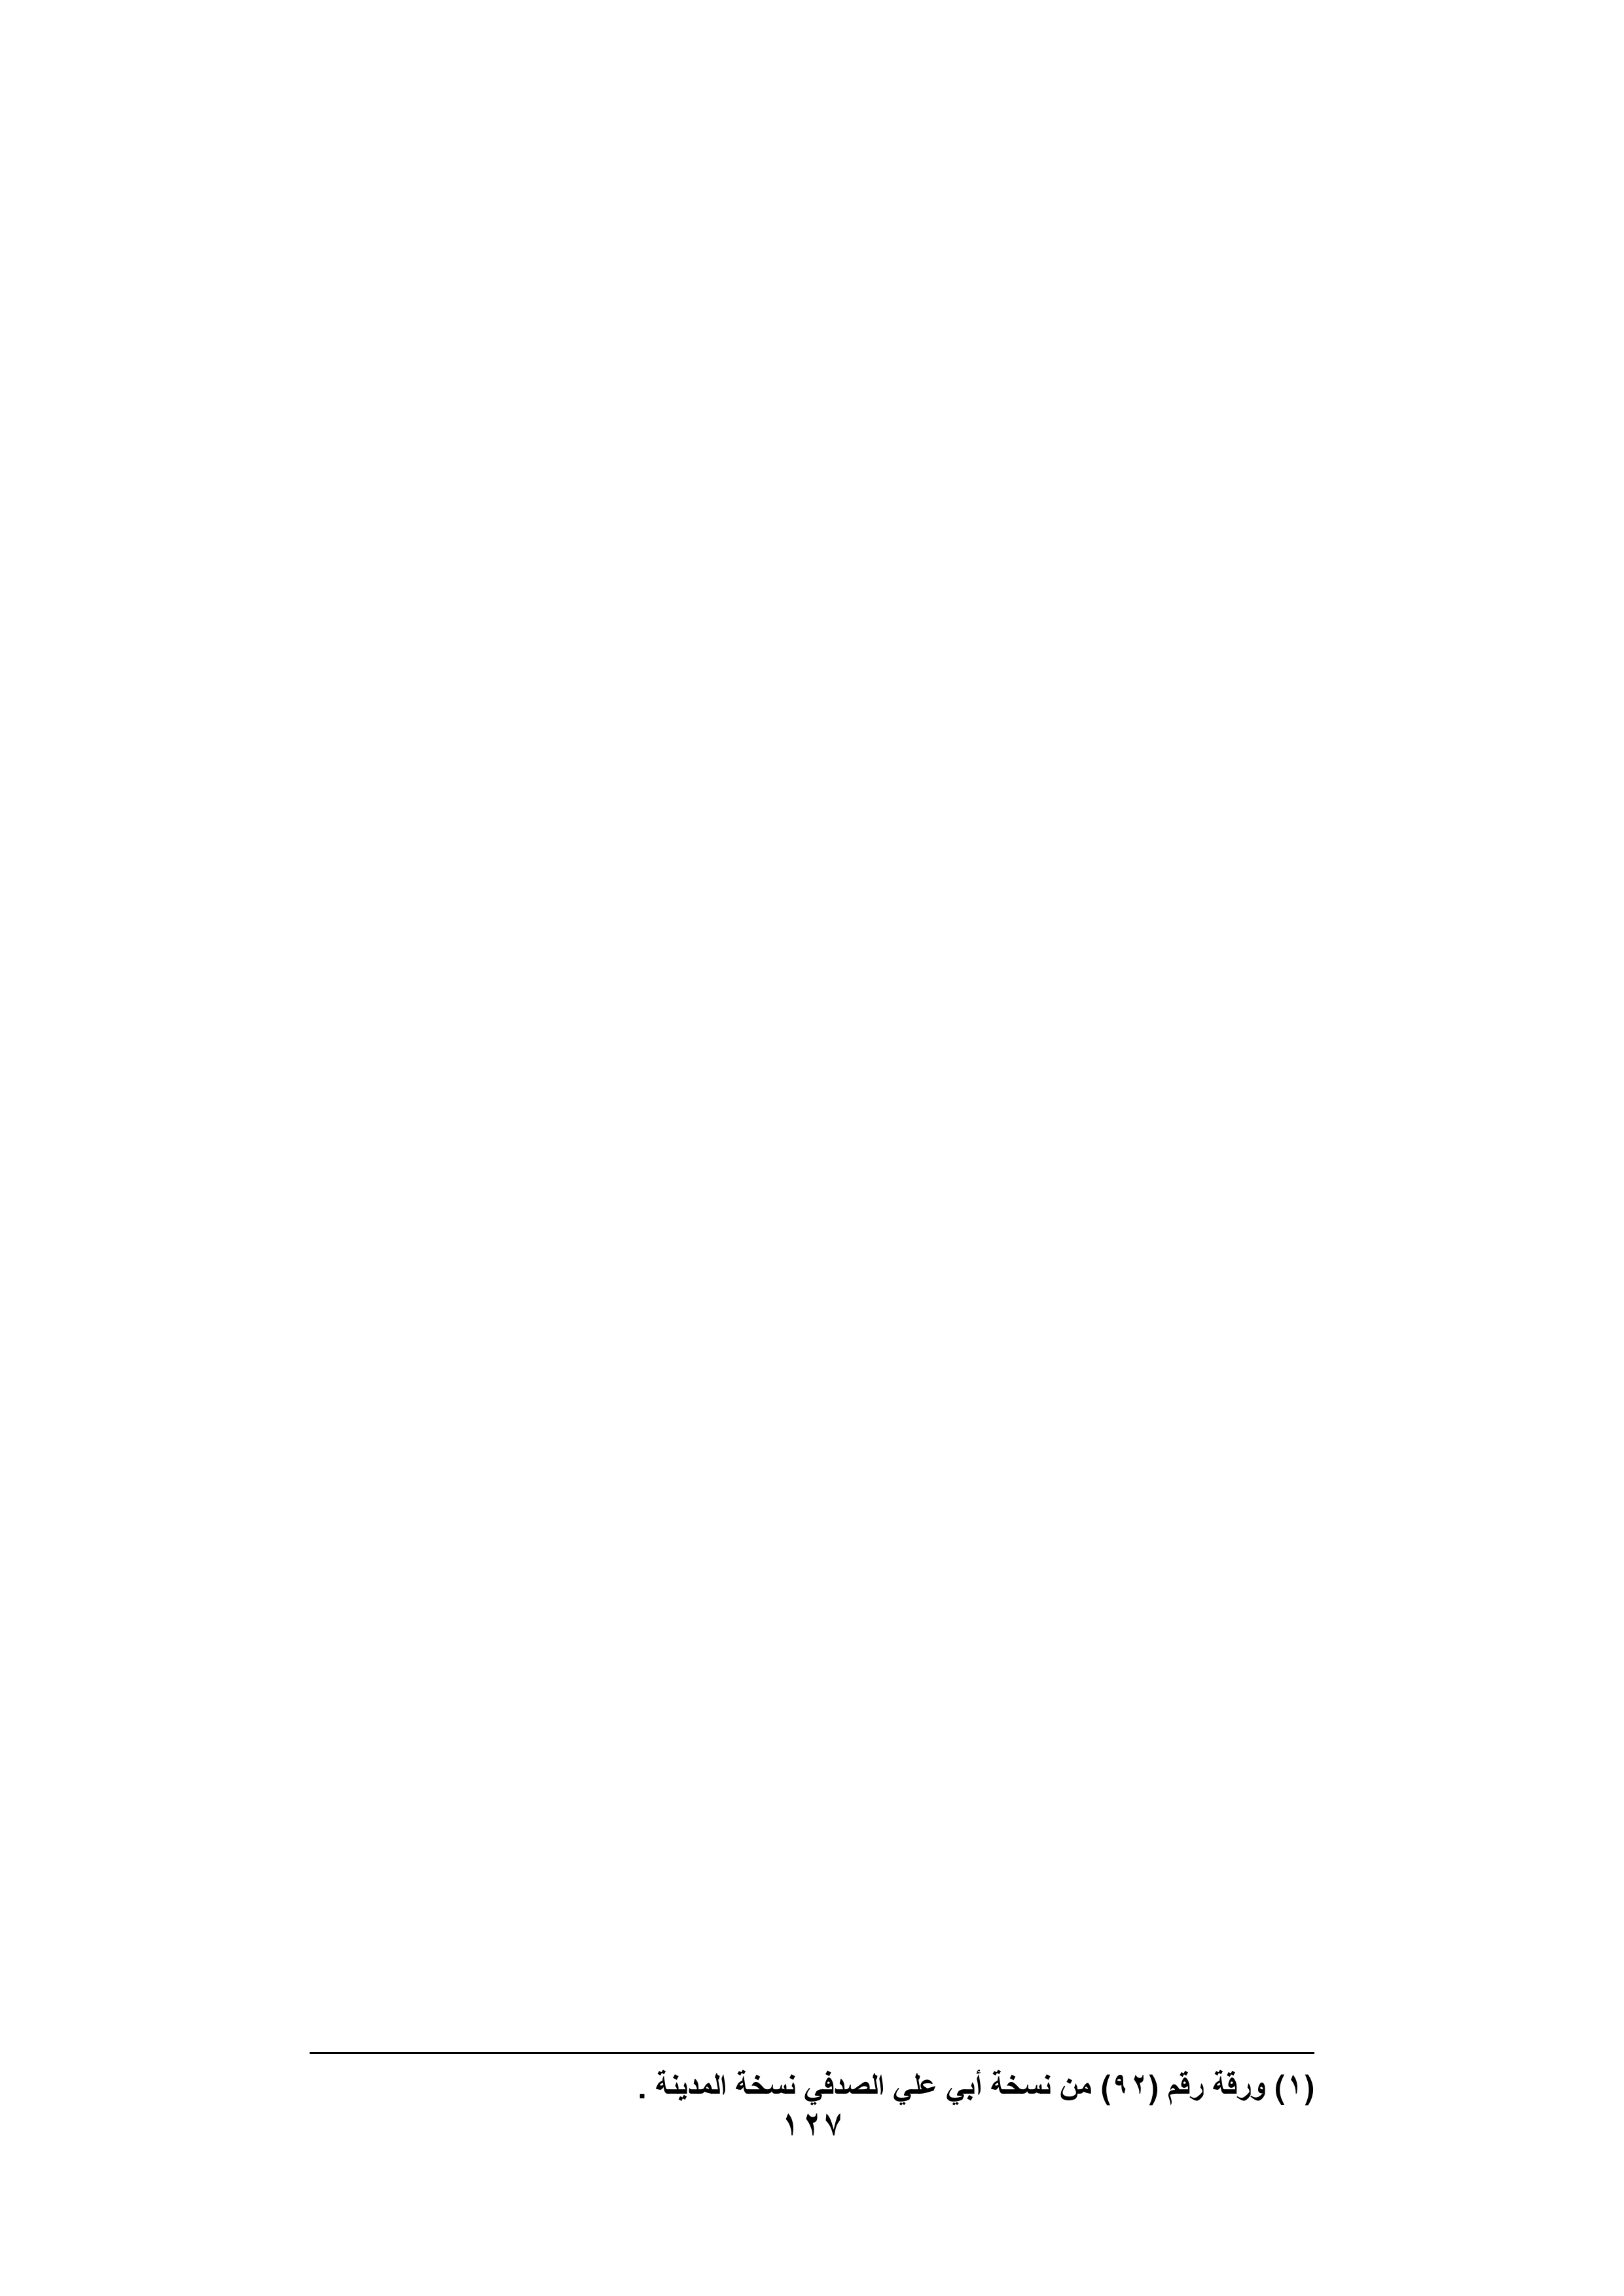 (١) ورقة رقم (٩٢) من نسخة أبي علي الصدفي نسخة المدينة .
١٢٧